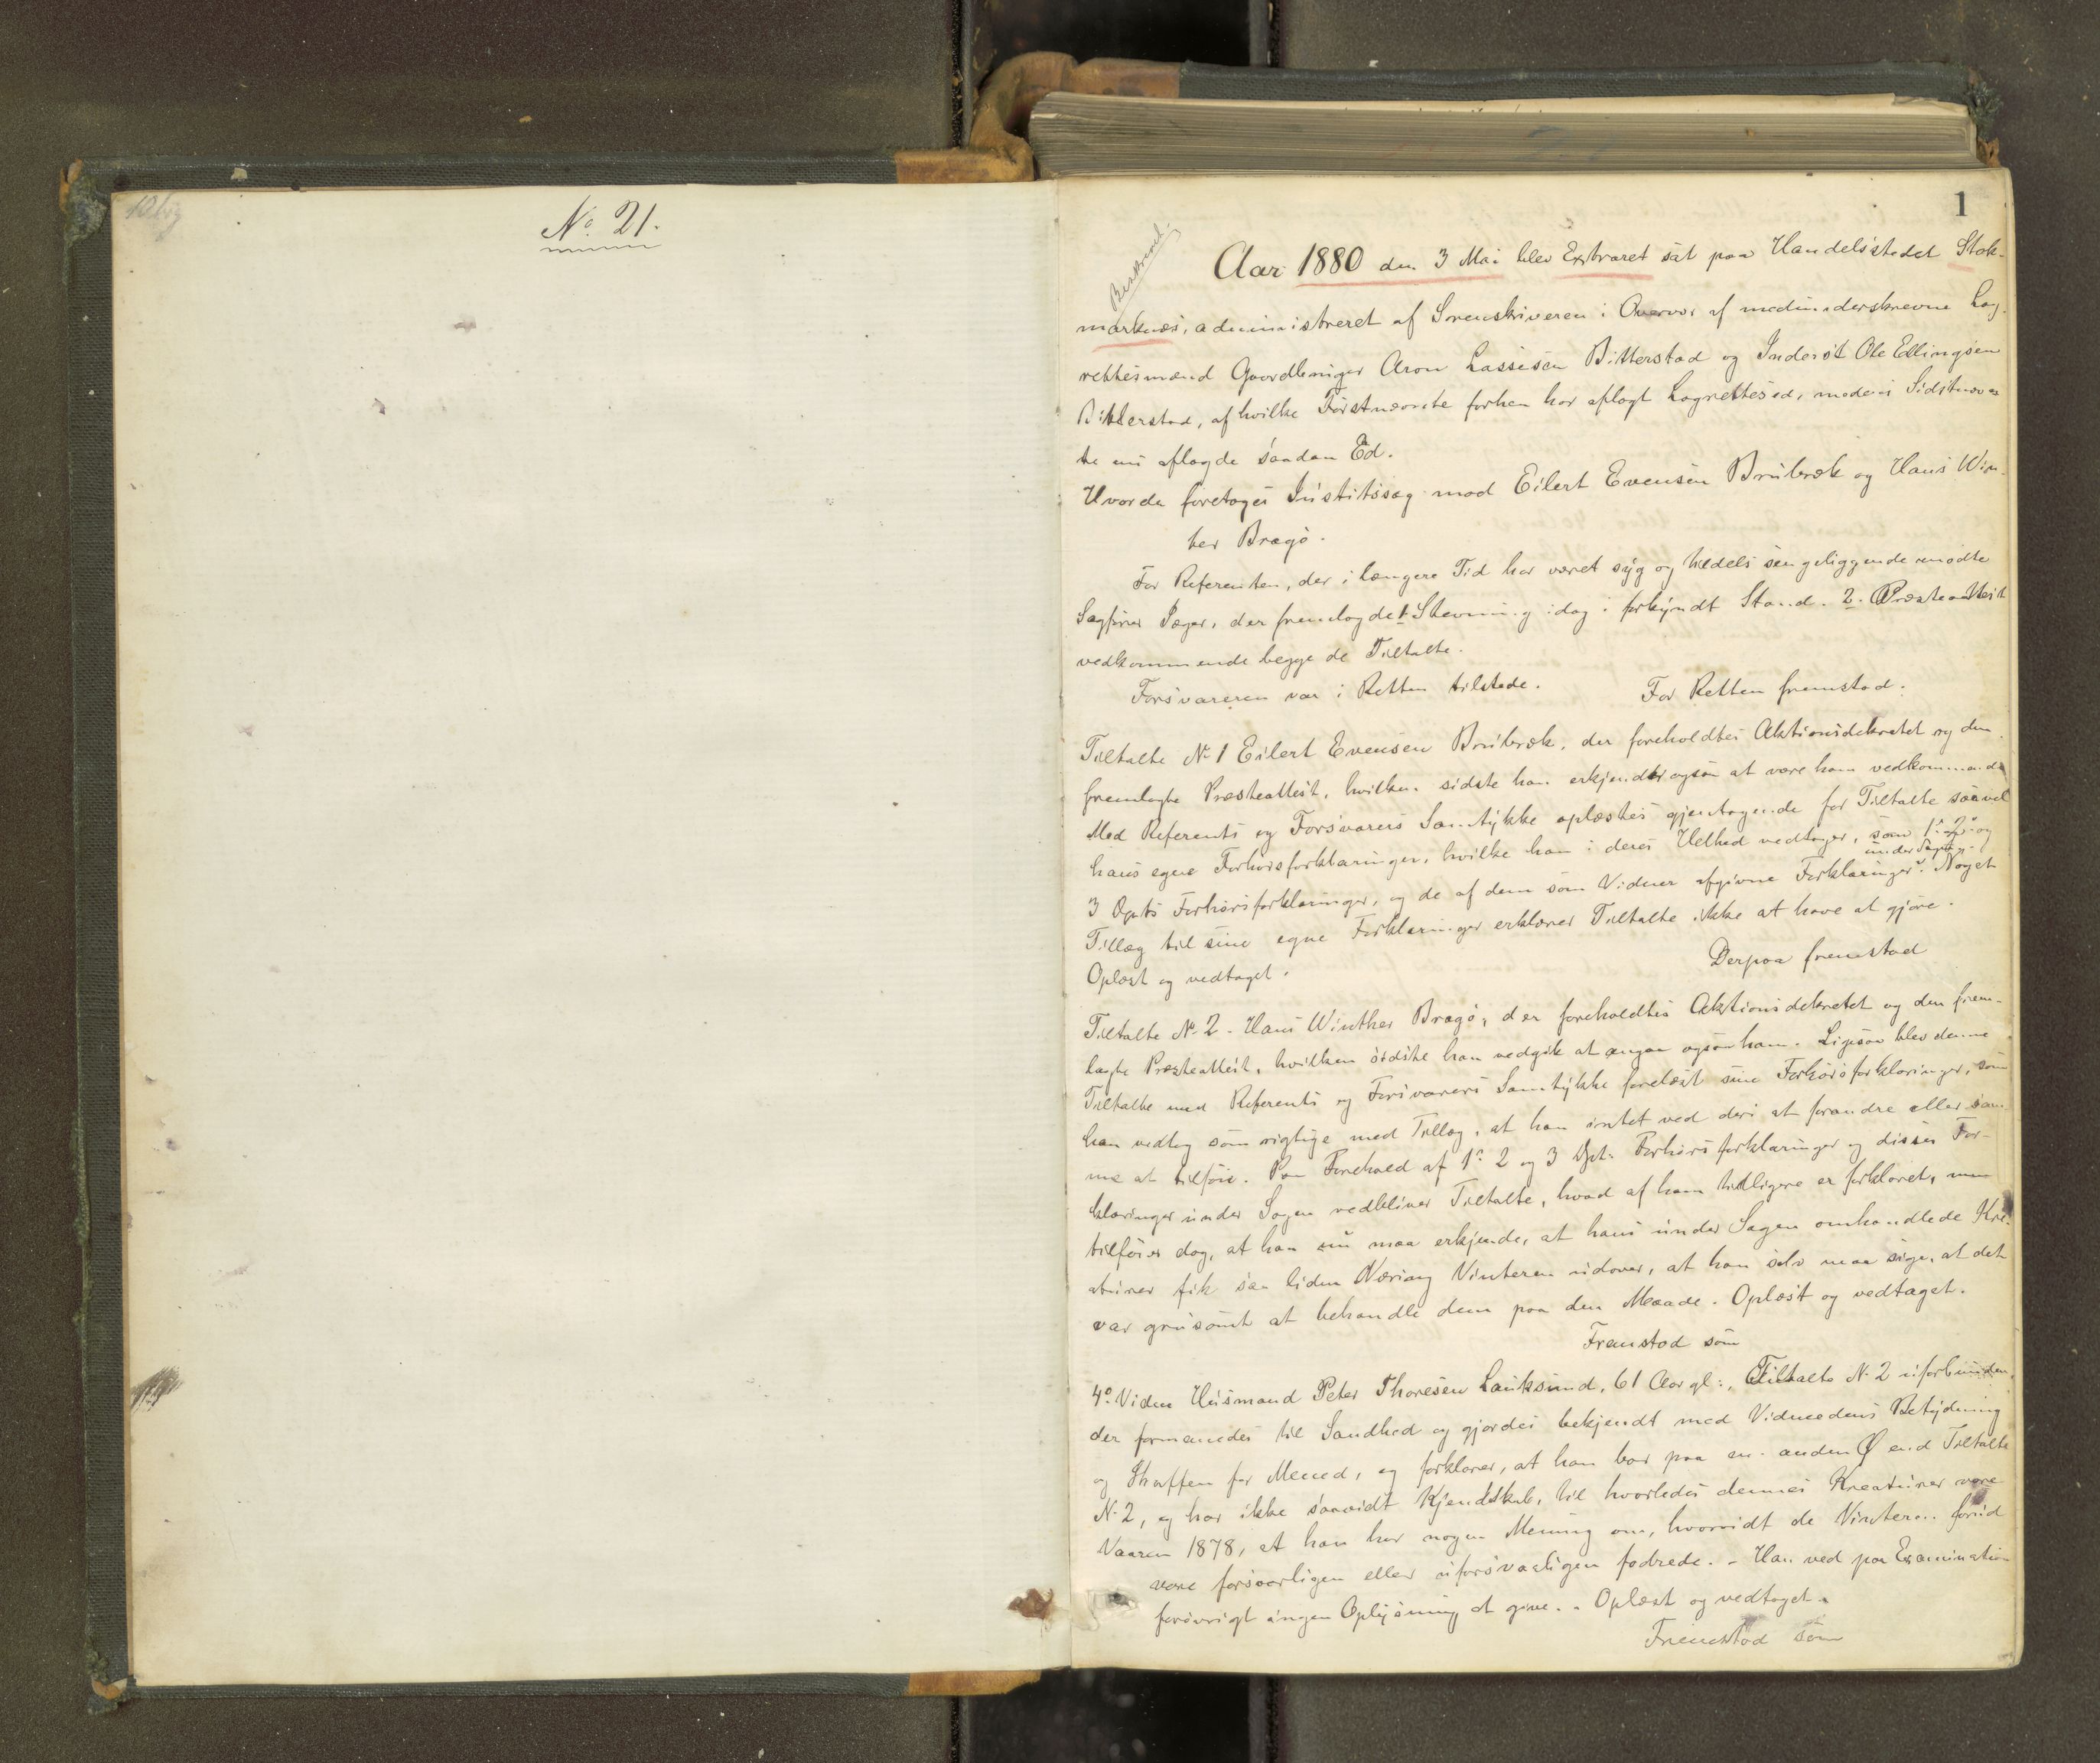 No. 21.
1
Beskrevet.
Aar 1880 den 3 Mai blev Extraret sat paa Handelsstedet Stok-
marknæs, administreret af Sorenskriveren i Overvær af medunderskrevne Lag-
rettesmænd Gaardbruger Aron Lassesen Bitterstad og Inderst Ole Edlingsen
Bitterstad, af hvilke Førstnævnte forhen har aflagt Lagrettesed, medens Sidstnævn
te nu aflagde saadan Ed.
Hvorda foretoges Justitssag mod Eilert Evensen Brubræk og Hans Win-
ther Bragø.
For Referenten, der i længere Tid har været syg og tildels sengeliggende mødte
Sagfører Jæger, der fremlagde 1 Stevning idag i forkyndt Stand. 2. Præsteattest
vedkommende begge de Tiltalte.
Forsvareren var i Retten tilstede. For Retten fremstod.
Tiltalte No 1 Eilert Evensen Brubræk, der foreholdtes Aktionsdekretet og den
fremlagte Præsteattest, hvilken sidste han erkjendte ogsaa at være ham vedkommende
Med Referents og Forsvarers Samtykke oplæstes gjentagende for Tiltalte saavel
hans egne Forhørsforklaringer, hvilke han i deres Helhed vedtager, som 1ste 2. og
3 Dpts Forhørsforklaringer, og de af dem som Vidner afgivne Forklaringer under Sagen. Noget
Tillæg til sine egne Forklaringer erklærer Tiltalte ikke at have at gjøre.
Oplæst og vedtaget. Derpaa fremstod
Tiltalte No 2. Hans Winther Bragø, der foreholdtes Aktionsdekretet og den frem-
lagte Præsteattest, hvilken sidste han vedgik at angaa ogsaa ham. Ligesaa blev denne
Tiltalte med Referents og Forsvarers Samtykke forelæst sine Forhørsforklaringer, som
han vedtog som rigtige med Tillæg, at han intet ved deri at forandre eller sam
me at tilføie. Paa Forehold af 1ste 2 og 3 Dpts Forhørsforklaringer og disses For-
klaringer under Sagen vedbliver Tiltalte, hvad af ham tidligere er forklaret, men
tilføier dog, at han nu maa erkjende, at hans under Sagen omhandlede Kre-
aturer fik saa liden Næring Vinteren udover, at han selv maa sige, at det
var grusomt at behandle dem paa den Maade. Oplæst og vedtaget.
Fremstod som
4de Vidne Husmand Peter Thoresen Lauksund, 61 Aar gl:, Tiltalte No 2 uforbunden,
der formanedes til Sandhed og gjordes bekjendt med Vidneedens Betydning
og Straffen for Mened, og forklarer, at han bor paa en anden Ø end Tiltalte
No 2, og har ikke saavidt Kjendskab, til hvorledes dennes Kreaturer vare
Vaaren 1878, at han har nogen Mening om, hvorvidt de Vinteren forud
vare forsvarligen eller uforsvarligen fodrede. - Han ved paa Examination
forøvrigt ingen Oplysning at give. - Oplæst og vedtaget.
Fremstod som